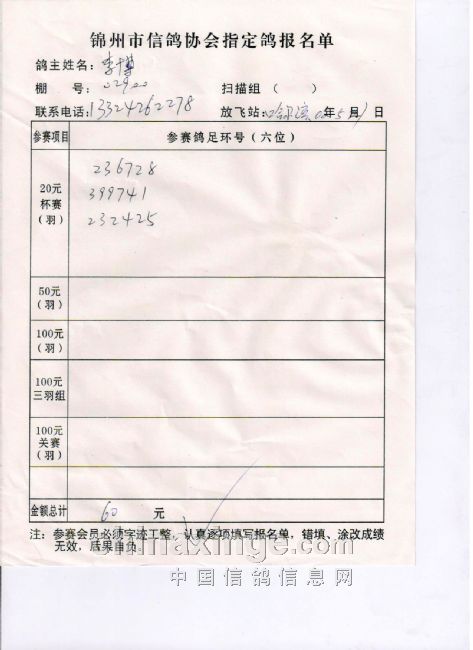 锦州市信鸽协会指定鸽报名单
鸽主姓名：李博
棚 号：02900
扫描组（ ）
联系电话：13324262278 放飞站：年5月 日
参赛项目 参赛鸽足环号（六位）
20元
杯赛
（羽）
236728
399741
232425
50元
（羽）
100元
（羽）
100元
三羽组
100元
关赛
（羽）
金额总计 60 元
注：参赛会员必须字迹工整，认真逐项填写报名单，错填、涂改成绩
无效，后果自负
chinaxinge.com
中国信鸽信息网